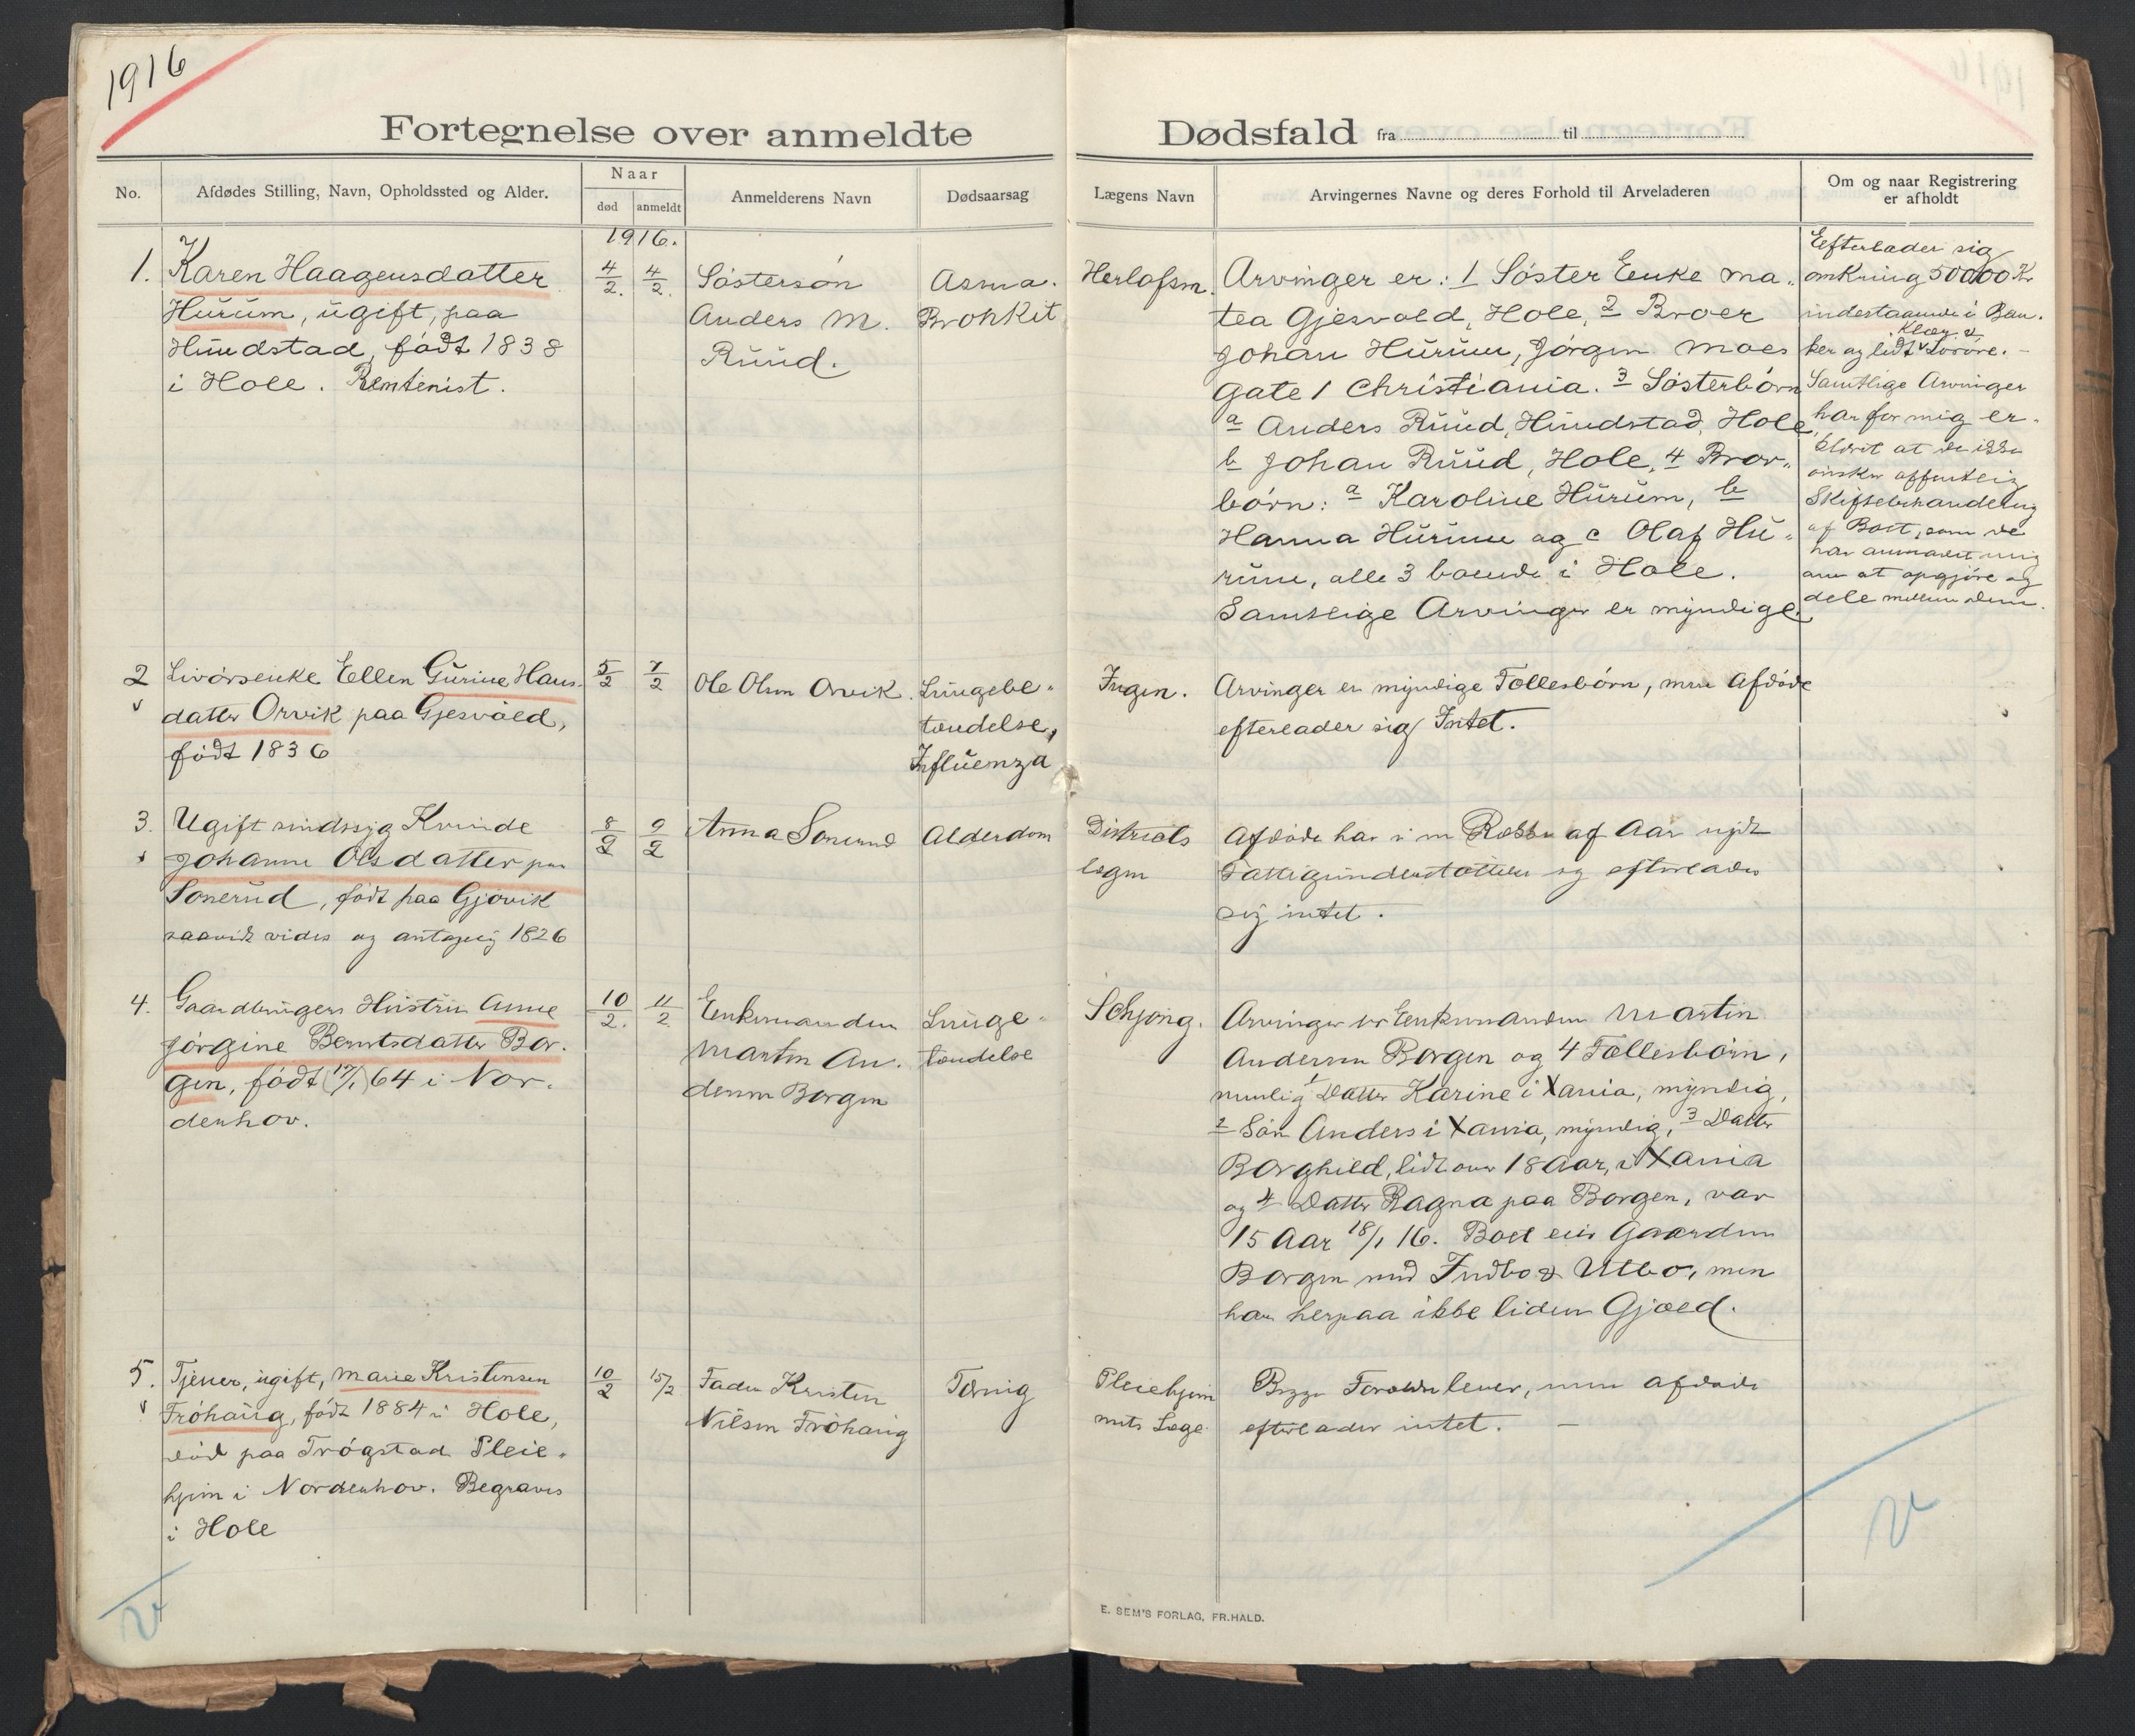 1916
Fortegnelse over anmeldte Dødsfald fra til
No.
Afdødes Stilling, Navn, Opholdssted og Alder.
Naar
død
anmeldt
Anmelderens Navn
Dødsaarsag
Lægens Navn
Arvingernes Navne og deres Forhold til Arveladeren
Om og naar Registrering
er afholdt
1916.
1.
Karen Haagensdatter
Hurum, ugift, paa
Hundstad, født 1838
i Hole. Rentenist.
4/2.
4/2.
Søstersøn
Anders M.
Ruud.
Asma.
Bronkit
Herlofsen.
Arvinger er: 1 Søster Enke Ma-
tea Gjesvold, Hole, 2 Broer
Johan Hurum, Jørgen Moes
Gate 1 Christiania. 3 Søsterbørn
a Anders Ruud, Hundstad, Hole,
b Johan Ruud, Hole, 4 Bror-
børn: a Karoline Hurum, b
Hanna Hurum og c Olaf Hu-
rum, alle 3 boende i Hole.
Samtlige Arvinger er myndige.
Efterlader sig
omkring 50000 Kr
indestaaende i Ban-
Klær &
ker og lidt Løsøre. -
Samtlige Arvinger
har for mig er-
klæret at de ikke
ønsker offentlig
Skiftebehandling
af Boet, som de
har anmodet mig
om at opgjøre og
dele mellem dem.
2
v
Livørsenke Ellen Gurine Hans-
datter Ørvik paa Gjesvold,
født 1836
5/2
7/2
Ole Olsen Ørvik.
Lungebe-
tændelse,
Influenza
Ingen.
Arvinger er myndige Fællesbørn, men Afdøde
efterlader sig Intet.
3.
v
Ugift sindssyg Kvinde
Johanne Olsdatter paa
Sonerud, født paa Gjøvik
saavidt vides og antagelig 1826
8/2
9/2
Anna Sonerud
Alderdom
Distrikts
lægen
Afdøde har i en Række af Aar nydt
Fattigunderstøttelse og efterlader
sig intet.
4.
Gaardbrugers Hustru Anne
Jørgine Berntsdatter Bor-
gen, født (17/1) 64 i Nor-
derhov.
10/2.
11/2
Enkemanden
Martin An-
dersen Borgen
Lunge-
tændelse
Schjong.
Arvinger er Enkemanden Martin
Andersen Borgen og 4 Fællesbørn,
nemlig 1 Datter Karine i Xania, myndig,
2 Søn Anders i Xania, myndig, 3 Datter
Borghild, lidt over 18 Aar, i Xania
og 4 Datter Ragna paa Borgen, var
15 Aar 18/1 16. Boet eier Gaarden
Borgen med Indbo & Utbo, men
har herpaa ikke liden Gjæld.
5.
v
Tjener, ugift, Marie Kristensen
Frøhaug, født 1884 i Hole,
død paa Trøgstad Pleie-
hjem i Norderhov. Begraves
i Hole
10/2
15/2
Fader Kristen
Nilsen Frøhaug
Tæring
Pleiehjem
mets Læge
Begge Forældre lever, men Afdøde
efterlader intet. -
E. SEM'S FORLAG, FR.HALD.